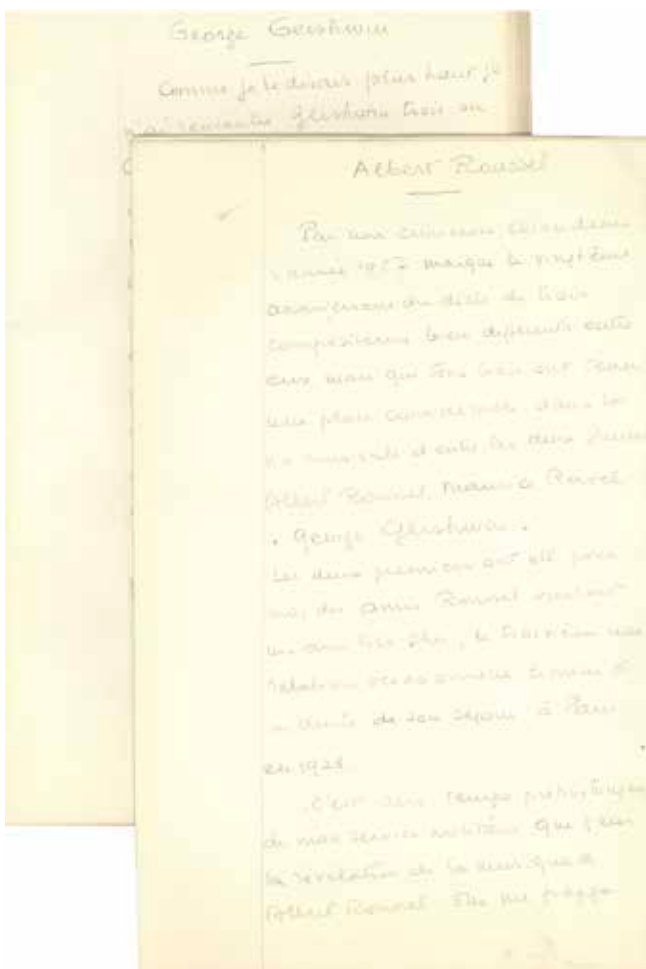 George Gershwin
Comme je le disais plus haut je
n'ai rencontré Gershwin trois ou
Albert Roussel
Par une curieuse coïncidence
l'année 1957 marque le vingtième
anniversaire du décès de trois
compositeurs bien différents entre
eux mais qui tous trois ont tenu
une place considérable dans la
vie musicale d'entre les deux guerres
Albert Roussel, Maurice Ravel
George Gershwin.
Les deux premiers ont été pour
moi des amis Roussel surtout
un ami très cher, le troisième une
relation occasionnelle
de son séjour à Paris
en 1928.
C'est aux temps préhistoriques
de mon service militaire que j'eus
la révélation de la musique d'
Albert Roussel. Elle me frappa